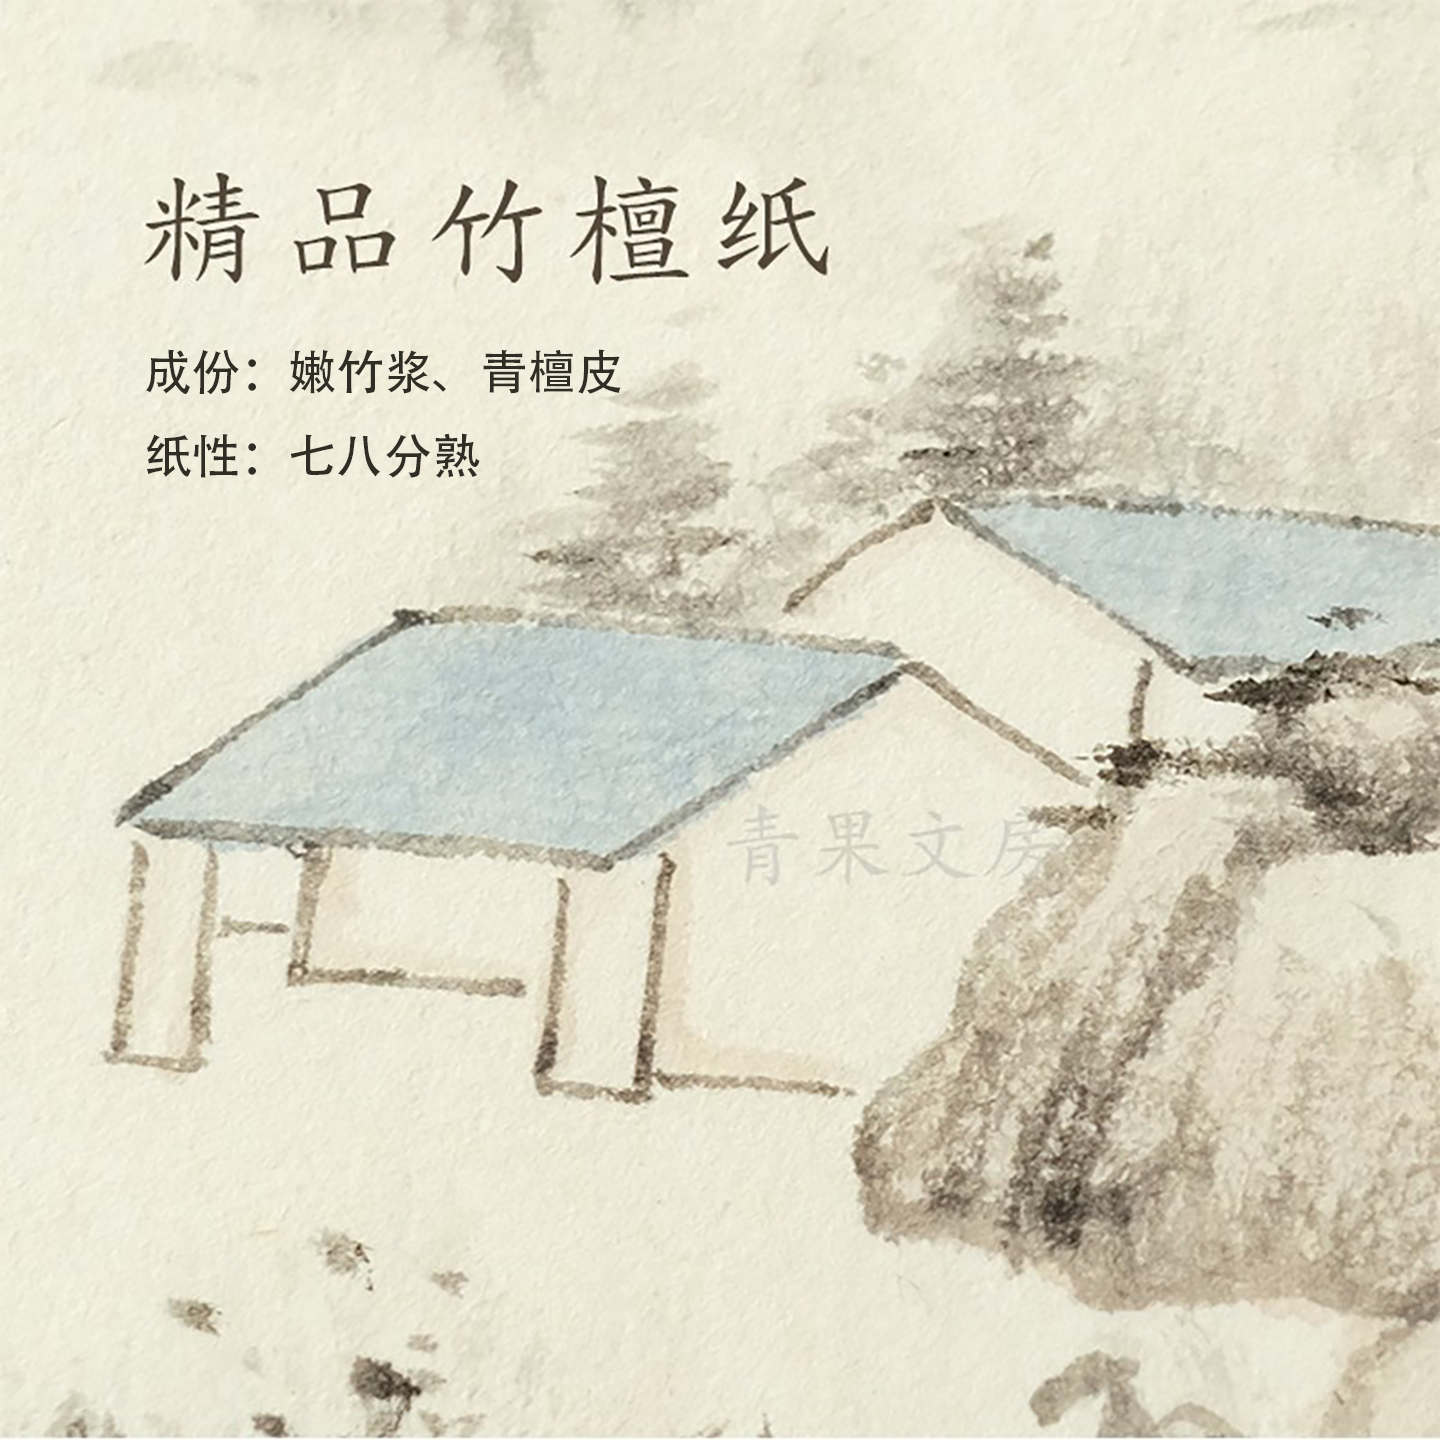 精品竹檀纸
成份：嫩竹浆、青檀皮
纸性：七八分熟
青果文房